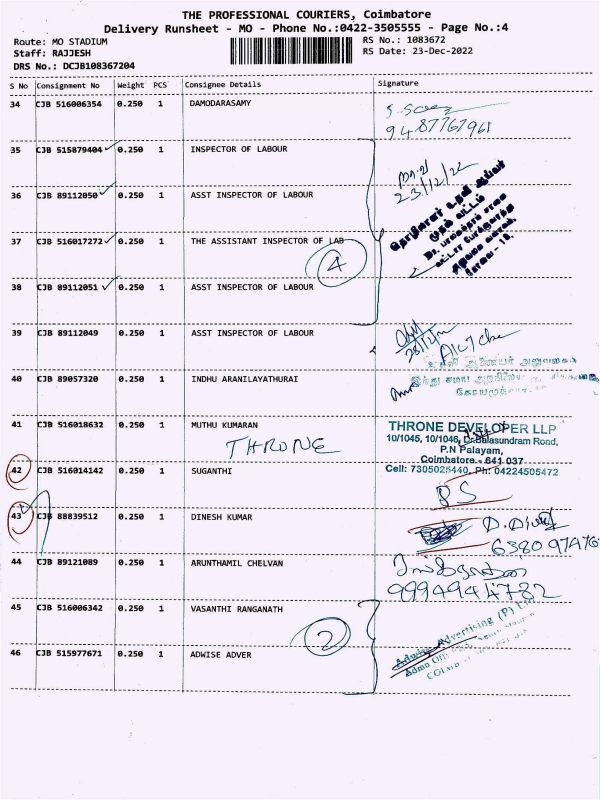 THE PROFESSIONAL COURIERS, Coimbatore
Delivery Runsheet - MO - Phone No.:0422-3505555 - Page No.:4
Route: MO STADIUM
Staff: RAJJESH
DRS No.: DCJB108367204
RS No.: 1083672
RS Date: 23-Dec-2022
S No Consignment No Weight PCS Consignee Details Signature
34 CJB 516006354 0.250 1 DAMODARASAMY
9487767961
35 CJB 515879404 0.250 1 INSPECTOR OF LABOUR
23/12/22
36 CJB 89112050 0.250 1 ASST INSPECTOR OF LABOUR
37 CJB 516017272 0.250 1 THE ASSISTANT INSPECTOR OF LAB
4
38 CJB 89112051 0.250 1 ASST INSPECTOR OF LABOUR
39 CJB 89112049 0.250 1 ASST INSPECTOR OF LABOUR
40 CJB 89057320 0.250 1 INDHU ARANILAYATHURAI
41 CJB 516018632 0.250 1 MUTHU KUMARAN
THRONE
THRONE DEVELOPER LLP
10/1045, 10/1046, Dr.Balasundram Road,
P.N Palayam,
Coimbatore - 641 037
Cell: 7305025440, Ph: 04224505472
42 CJB 516014142 0.250 1 SUGANTHI
43 CJB 88839512 0.250 1 DINESH KUMAR
44 CJB 89121089 0.250 1 ARUNTHAMIL CHELVAN
9994944782
45 CJB 516006342 0.250 1 VASANTHI RANGANATH
2
Adwise Advertising (P) Ltd
46 CJB 515977671 0.250 1 ADWISE ADVER